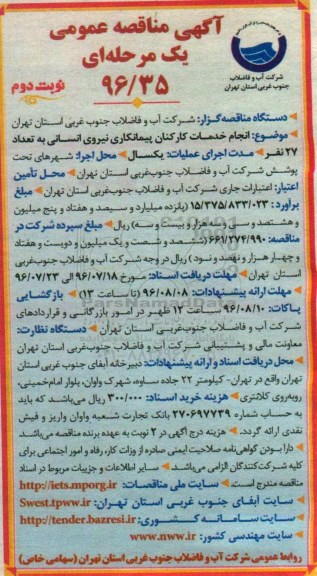 آگهی مناقصه عمومی
یک مرحله‌ای
۹۶/۳۵
نوبت دوم
شرکت آب و فاضلاب
جنوب غربی استان تهران
دستگاه مناقصه‌گزار: شرکت آب و فاضلاب جنوب غربی استان تهران
موضوع: انجام خدمات کارکنان پیمانکاری نیروی انسانی به تعداد
۲۷ نفر مدت اجرای عملیات: یکسال محل اجرا: شهرهای تحت
پوشش شرکت آب و فاضلاب جنوب غربی استان تهران محل تأمین
اعتبار: اعتبارات جاری شرکت آب و فاضلاب جنوب غربی استان تهران مبلغ
برآورد: ۱۵/۳۷۵/۸۳۳/۰۲۳ (پانزده میلیارد و سیصد و هفتاد و پنج میلیون
و هشتصد و سی و سه هزار و بیست و سه) ریال مبلغ سپرده شرکت در
مناقصه: ۶۶۱/۲۷۴/۹۹۰ (ششصد و شصت و یک میلیون و دویست و هفتاد
و چهار هزار و نهصد و نود) ریال در وجه شرکت آب و فاضلاب جنوب غربی
استان تهران مهلت دریافت اسناد: مورخ ۹۶/۰۷/۱۸ الی ۹۶/۰۷/۲۳
مهلت ارائه پیشنهادات: ۹۶/۰۸/۰۸ (تا ساعت ۱۳) بازگشایی
پاکات: ۹۶/۰۸/۱۰ ساعت ۱۲ ظهر در امور بازرگانی و قراردادهای
شرکت آب و فاضلاب جنوب غربی استان تهران دستگاه نظارت:
معاونت مالی و پشتیبانی شرکت آب و فاضلاب جنوب غربی استان تهران
محل دریافت اسناد و ارائه پیشنهادات: دبیرخانه آبفای جنوب غربی استان
تهران واقع در تهران- کیلومتر ۲۲ جاده ساوه، شهرک واوان، بلوار امام خمینی،
روبه‌روی کلانتری هزینه خرید اسناد: ۳۰۰/۰۰۰ ریال می‌باشد که باید
به حساب شماره ۲۷۰۶۹۷۷۳۹ بانک تجارت شعبه واوان واریز و فیش
نقدی ارائه گردد. هزینه درج آگهی در ۲ نوبت به عهده برنده مناقصه می‌باشد
دارا بودن گواهی‌نامه صلاحیت ایمنی صادره از وزارت کار، رفاه و امور اجتماعی برای
کلیه شرکت‌کنندگان الزامی می‌باشد. سایر اطلاعات و جزییات مربوط در اسناد
مناقصه مندرج است. سایت ملی مناقصات: http://iets.mporg.ir
سایت آبفای جنوب غربی استان تهران: Swest.tpww.ir
سایت سامانه کشوری: http://tender.bazresi.ir
سایت مهندسی کشور: www.nww.ir
روابط عمومی شرکت آب و فاضلاب جنوب غربی استان تهران (سهامی خاص)